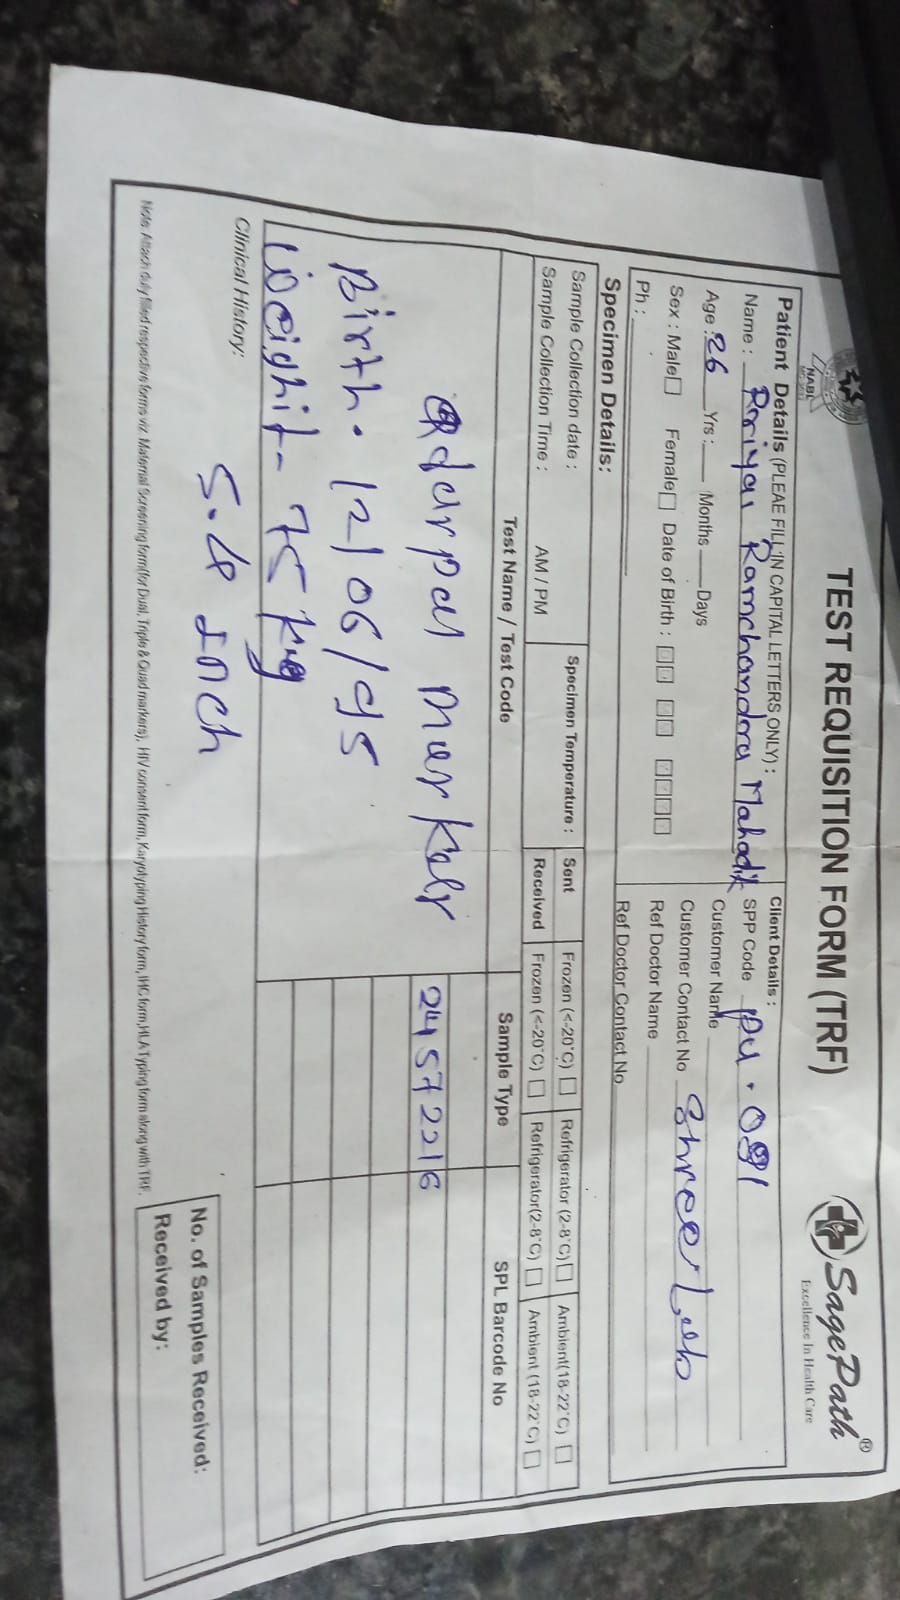 TEST REQUISITION FORM (TRF)
SagePath®
Excellence In Health Care
NABL
Patient Details (PLEAE FILL IN CAPITAL LETTERS ONLY) :
Client Details :
Name : Ramchandra Mahadik
SPP Code PU . 091
Age : 26 Yrs : Months Days
Customer Name
Sex : Male Female Date of Birth :
Customer Contact No Lab
Ph :
Ref Doctor Name
Ref Doctor Contact No
Specimen Details:
Sample Collection date :
Specimen Temperature :
Sent Frozen (<-20°C) Refrigerator (2-8°C) Ambient(18-22°C)
Sample Collection Time : AM / PM
Received Frozen (<-20°C) Refrigerator(2-8°C) Ambient (18-22°C)
Test Name / Test Code Sample Type SPL Barcode No
24572216
Birth. 12/06/95
75 kg
Clinical History:
No. of Samples Received:
Received by:
Note: Attach duly filled respective forms viz. Maternal Screening form(for Dual, Triple & Quad markers), HIV consent form, Karyotyping History form, IHC form, HLA Typing form along with TRF.